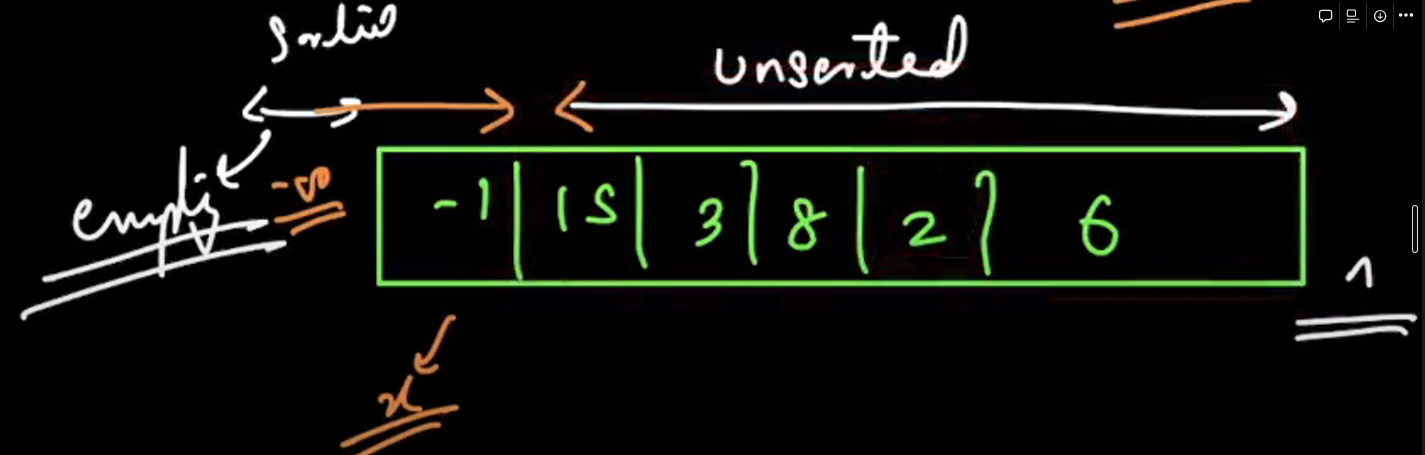 sorted
unsorted
empty
-∞
-1 | 15 | 3 | 8 | 2 | 6
x